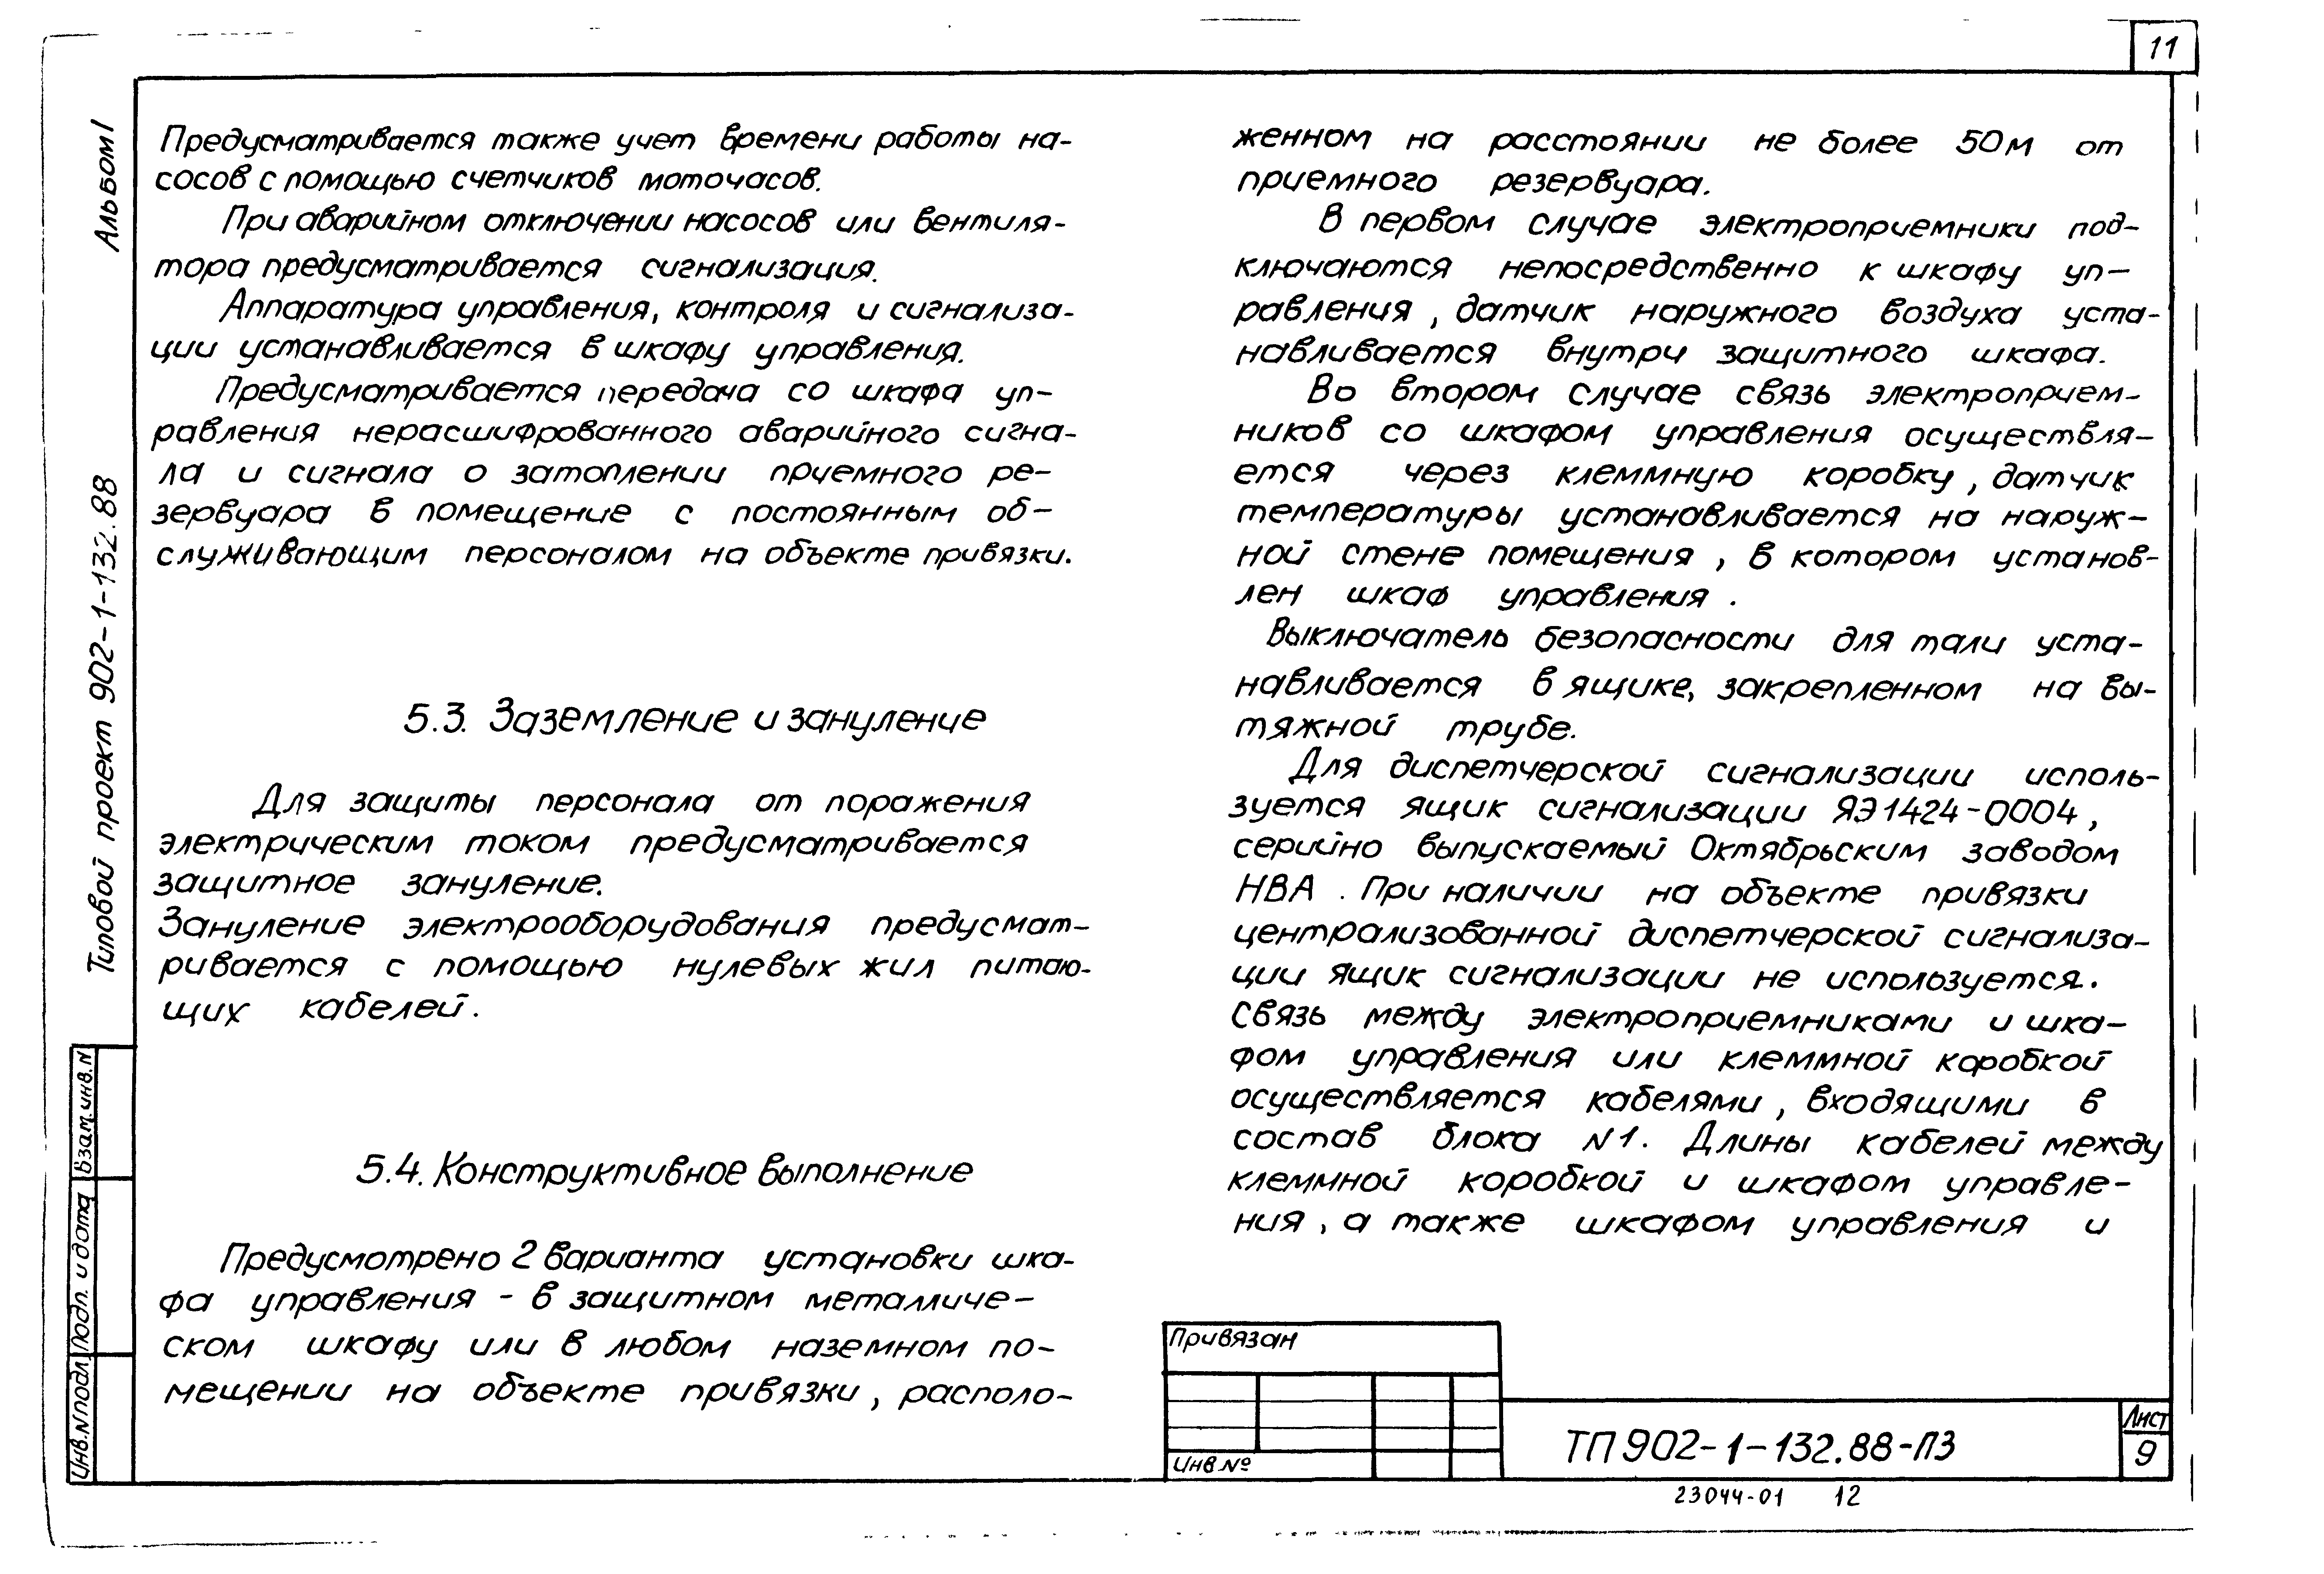 11
Альбом I
Типовой проект 902-1-132.88
Предусматривается также учет времени работы на-
сосов с помощью счетчиков моточасов.
При аварийном отключении насосов или вентиля-
тора предусматривается сигнализация.
Аппаратура управления, контроля и сигнализа-
ции устанавливается в шкафу управления.
Предусматривается передача со шкафа уп-
равления нерасшифрованного аварийного сигна-
ла и сигнала о затоплении приемного ре-
зервуара в помещение с постоянным об-
служивающим персоналом на объекте привязки.
5.3. Заземление и зануление
Для защиты персонала от поражения
электрическим током предусматривается
защитное зануление.
Зануление электрооборудования предусмат-
ривается с помощью нулевых жил питаю-
щих кабелей.
5.4. Конструктивное выполнение
Предусмотрено 2 варианта установки шка-
фа управления - в защитном металличе-
ском шкафу или в любом наземном по-
мещении на объекте привязки, располо-
женном на расстоянии не более 50м от
приемного резервуара.
В первом случае электроприемники под-
ключаются непосредственно к шкафу уп-
равления, датчик наружного воздуха уста-
навливается внутри защитного шкафа.
Во втором случае связь электроприем-
ников со шкафом управления осуществля-
ется через клеммную коробку, датчик
температуры устанавливается на наруж-
ной стене помещения, в котором установ-
лен шкаф управления.
Выключатель безопасности для тали уста-
навливается в ящике, закрепленном на вы-
тяжной трубе.
Для диспетчерской сигнализации исполь-
зуется ящик сигнализации ЯЭ1424-0004,
серийно выпускаемый Октябрьским заводом
НВА. При наличии на объекте привязки
централизованной диспетчерской сигнализа-
ции ящик сигнализации не используется.
Связь между электроприемниками и шка-
фом управления или клеммной коробкой
осуществляется кабелями, входящими в
состав блока N1. Длины кабелей между
клеммной коробкой и шкафом управле-
ния, а также шкафом управления и
Взам. инв. N
Подп. и дата
Инв. N подл.
Привязан
Инв №
ТП 902-1-132.88-ПЗ
Лист
9
23044-01 12